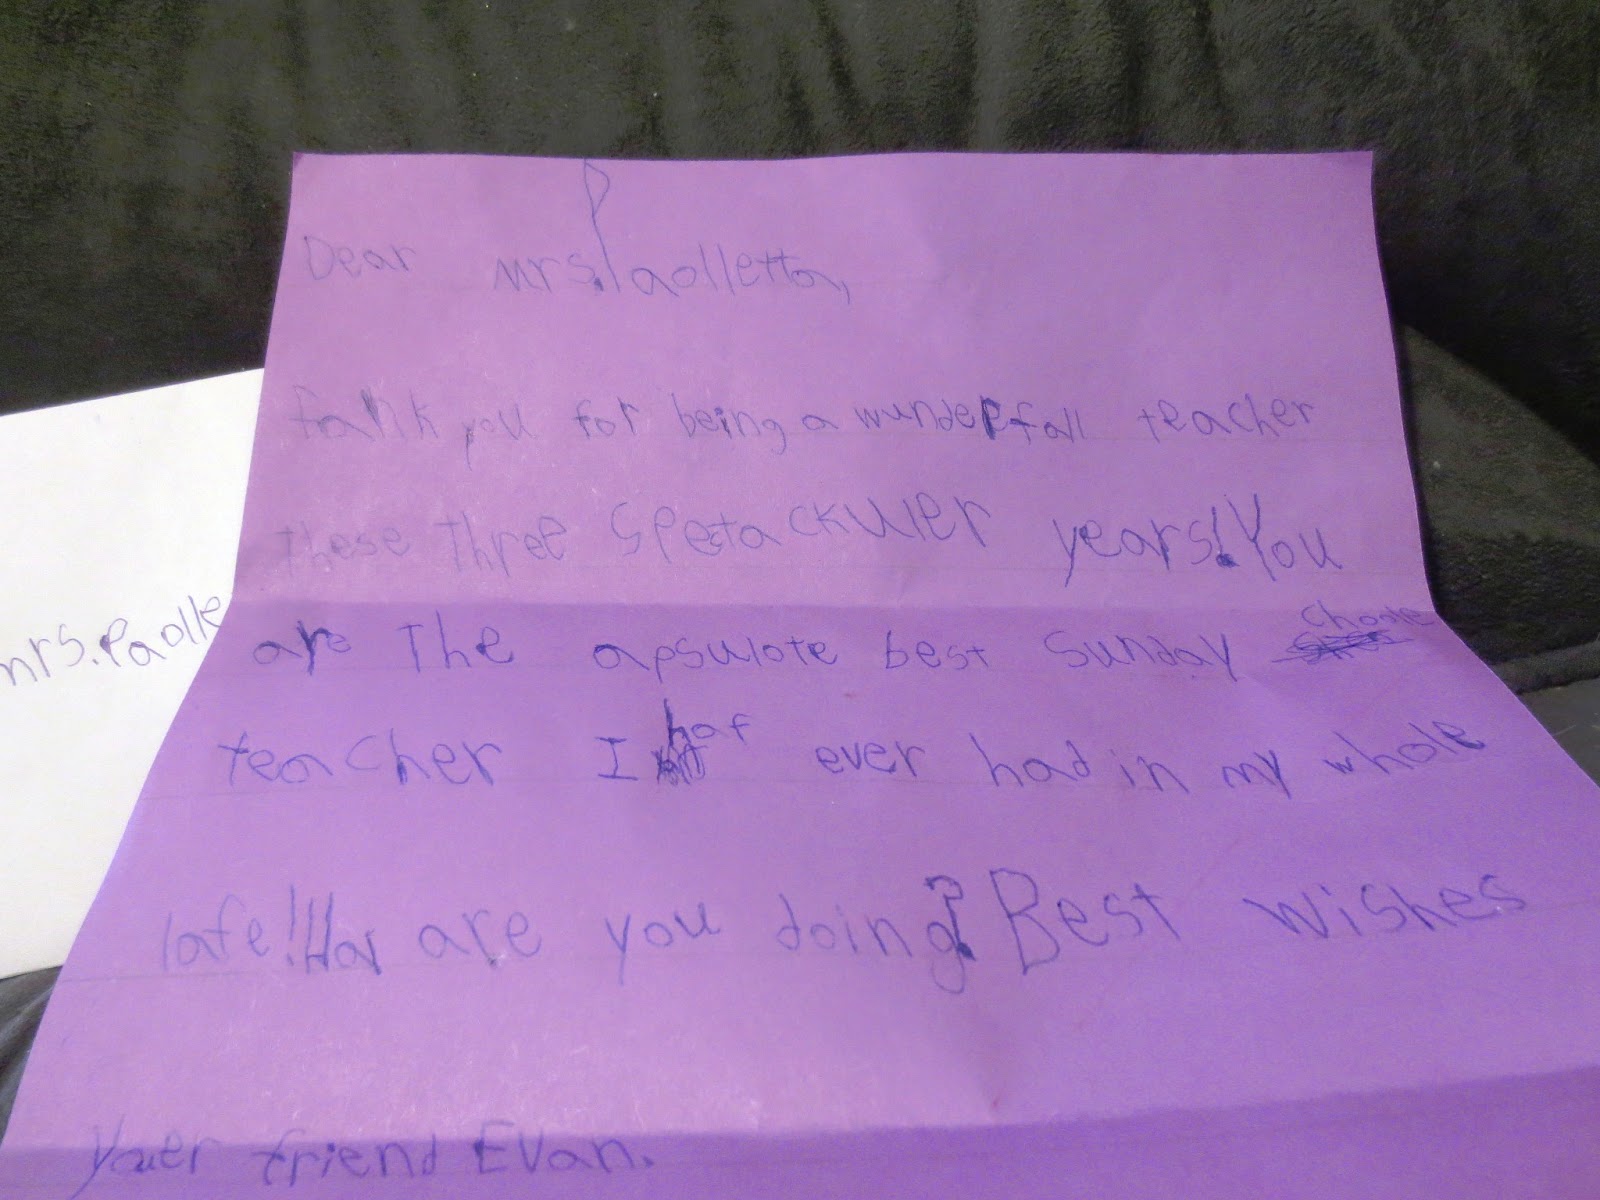 Dear mrs. Paolletta,
fank you for being a wunderfall teacher
these three spectackuler years! You
are The apsulote best Sunday Choole
teacher I haf ever had in my whole
lafe! How are you doing? Best wishes
youer friend Evan.
mrs. Paolle